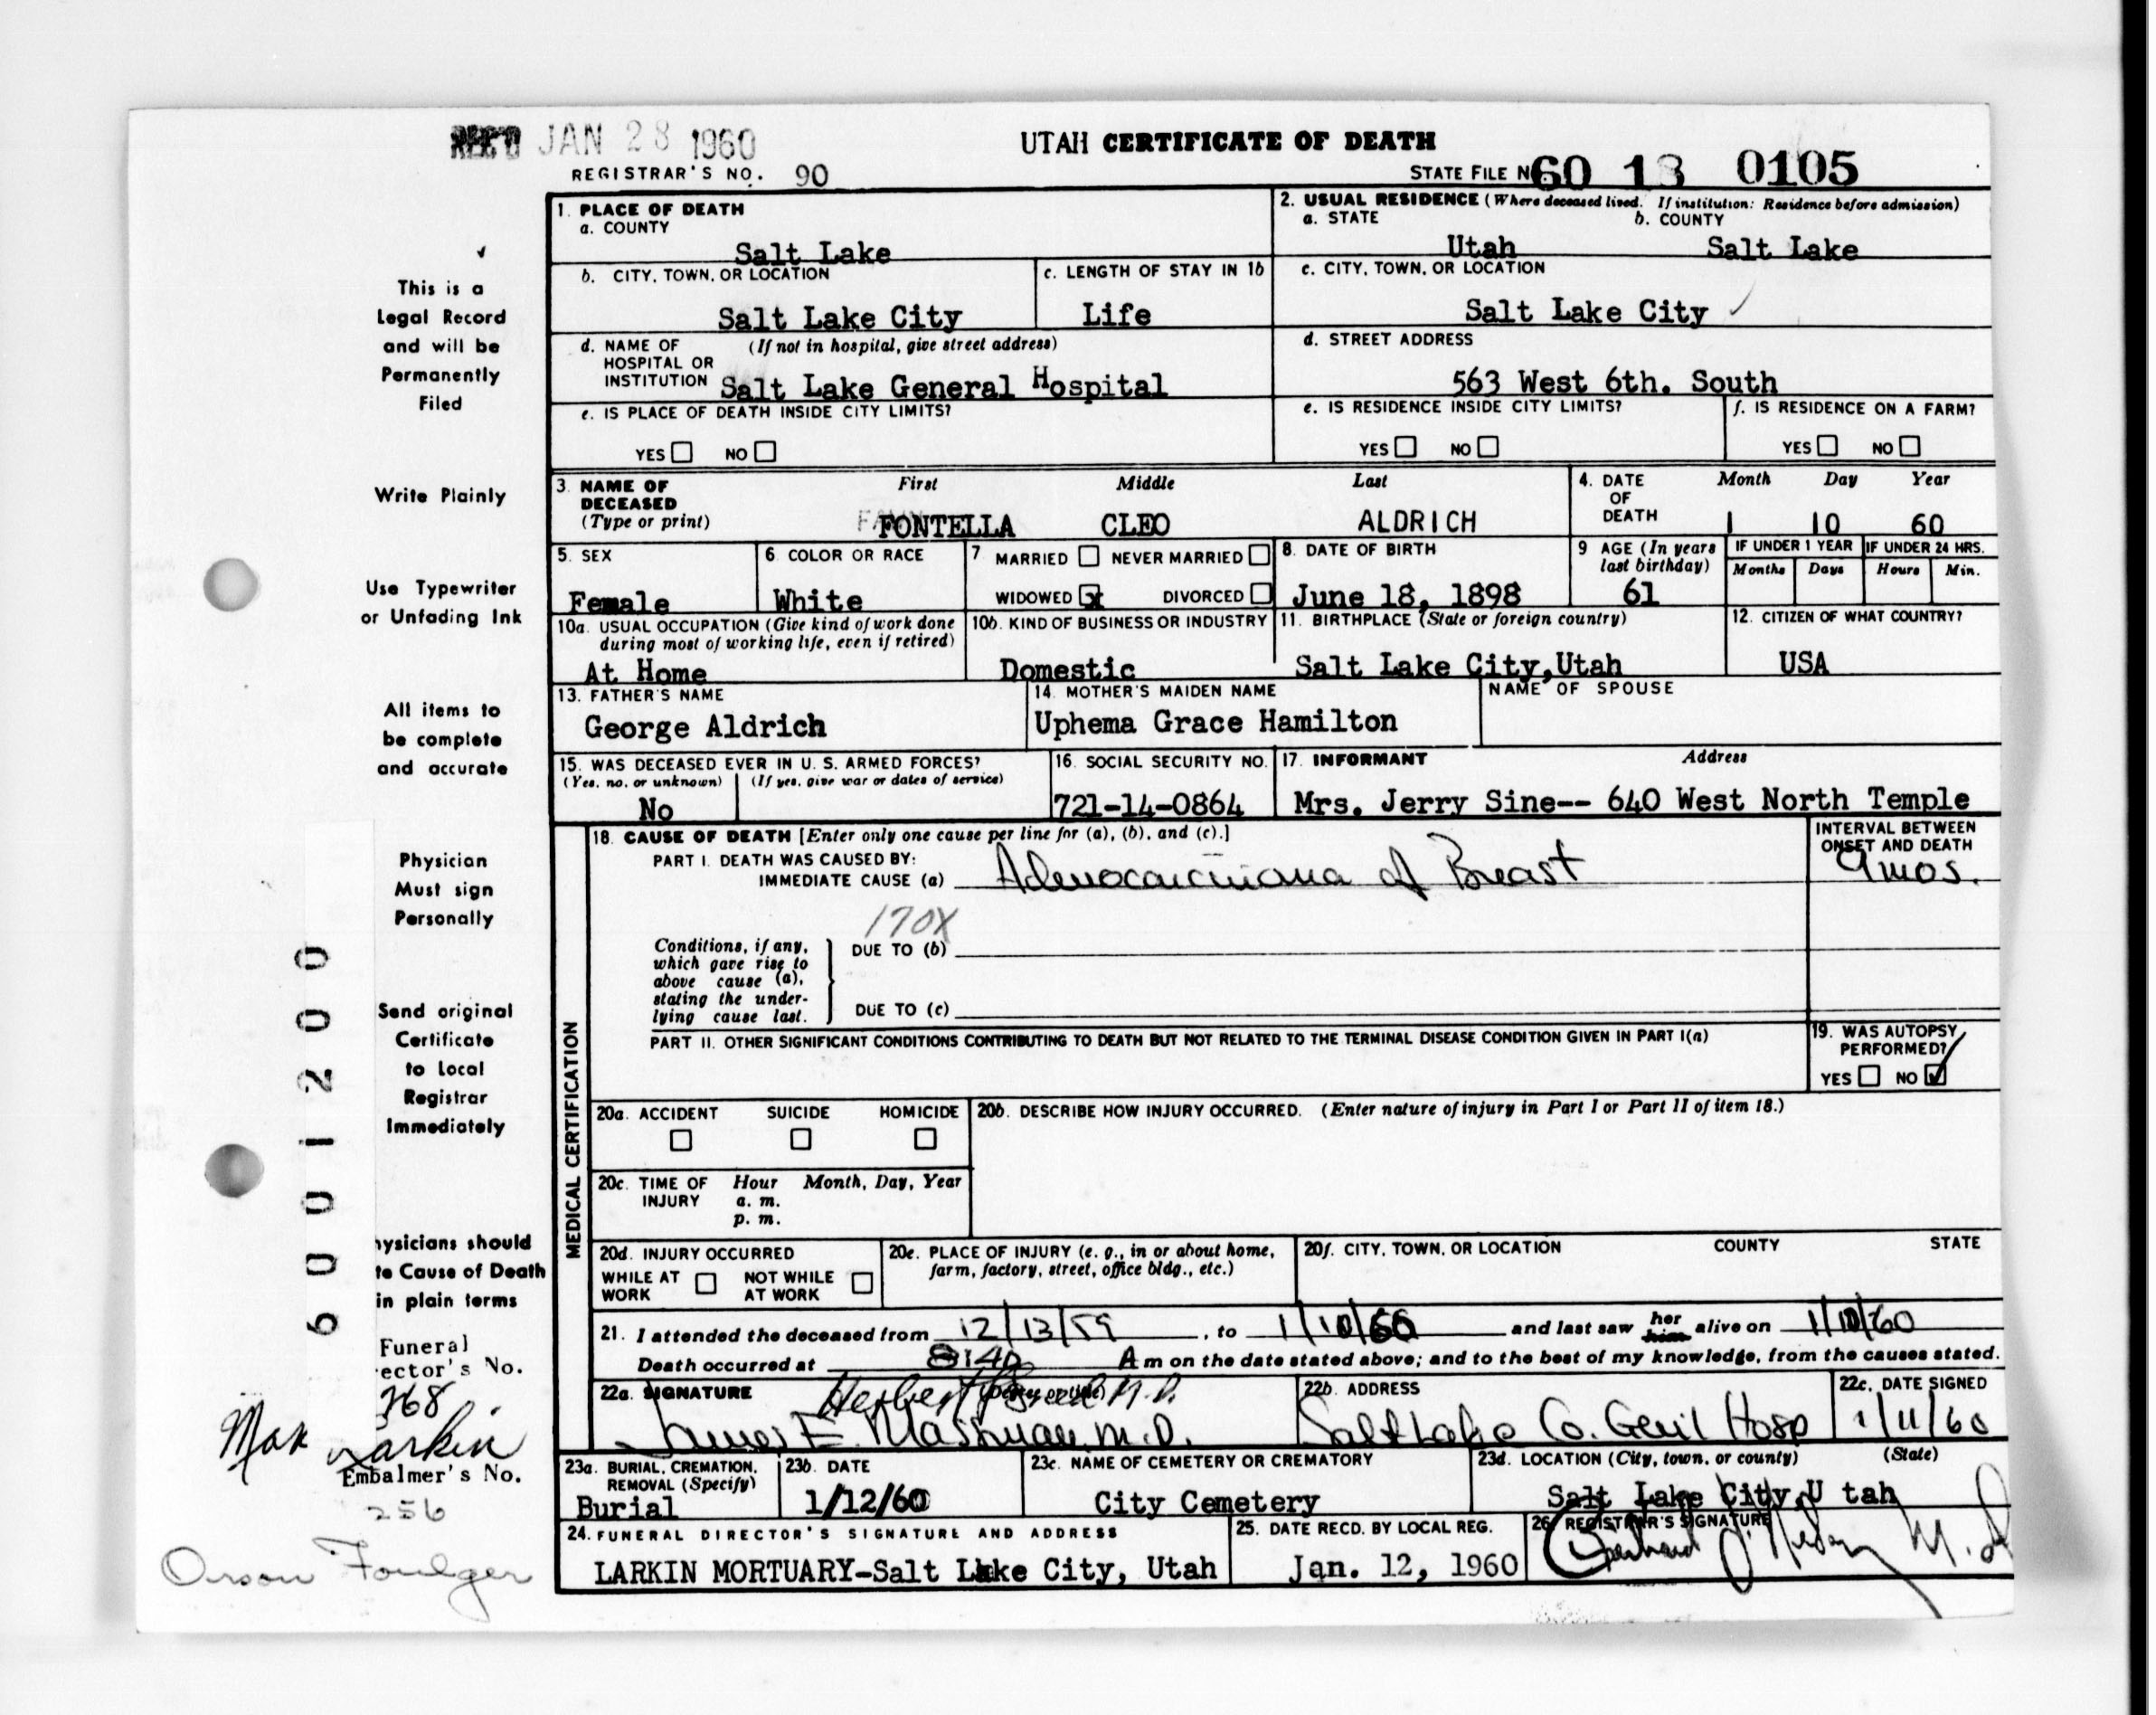 REC'D JAN 28 1960
UTAH CERTIFICATE OF DEATH
REGISTRAR'S NO. 90
STATE FILE NO 60 18 0105
This is a
Legal Record
and will be
Permanently
Filed
Write Plainly
Use Typewriter
or Unfading Ink
All items to
be complete
and accurate
Physician
Must sign
Personally
Send original
Certificate
to Local
Registrar
Immediately
hysicians should
te Cause of Death
in plain terms
Funeral
ector's No.
268
Max Larkin
Embalmer's No.
256
Orson Foulger
6001200
1. PLACE OF DEATH
a. COUNTY
Salt Lake
2. USUAL RESIDENCE (Where deceased lived. If institution: Residence before admission)
a. STATE b. COUNTY
Utah Salt Lake
b. CITY, TOWN, OR LOCATION
Salt Lake City
c. LENGTH OF STAY IN 1b
Life
c. CITY, TOWN, OR LOCATION
Salt Lake City
d. NAME OF (If not in hospital, give street address)
HOSPITAL OR
INSTITUTION Salt Lake General Hospital
d. STREET ADDRESS
563 West 6th. South
e. IS PLACE OF DEATH INSIDE CITY LIMITS?
YES NO
e. IS RESIDENCE INSIDE CITY LIMITS?
YES NO
f. IS RESIDENCE ON A FARM?
YES NO
3. NAME OF DECEASED (Type or print)
First Middle Last
FONTELLA CLEO ALDRICH
4. DATE OF DEATH
Month Day Year
1 10 60
5. SEX
Female
6. COLOR OR RACE
White
7 MARRIED NEVER MARRIED
WIDOWED x DIVORCED
8. DATE OF BIRTH
June 18, 1898
9 AGE (In years last birthday)
61
IF UNDER 1 YEAR IF UNDER 24 HRS.
Months Days Hours Min.
10a. USUAL OCCUPATION (Give kind of work done
during most of working life, even if retired)
At Home
10b. KIND OF BUSINESS OR INDUSTRY
Domestic
11. BIRTHPLACE (State or foreign country)
Salt Lake City,Utah
12. CITIZEN OF WHAT COUNTRY?
USA
13. FATHER'S NAME
George Aldrich
14 MOTHER'S MAIDEN NAME
Uphema Grace Hamilton
NAME OF SPOUSE
15. WAS DECEASED EVER IN U. S. ARMED FORCES?
(Yes, no, or unknown) (If yes, give war or dates of service)
No
16. SOCIAL SECURITY NO.
721-14-0864
17. INFORMANT Address
Mrs. Jerry Sine-- 640 West North Temple
MEDICAL CERTIFICATION
18. CAUSE OF DEATH [Enter only one cause per line for (a), (b), and (c).]
PART I. DEATH WAS CAUSED BY:
IMMEDIATE CAUSE (a) Adenocarcinoma of Breast
INTERVAL BETWEEN
ONSET AND DEATH
9 mos.
170X
Conditions, if any,
which gave rise to
above cause (a),
stating the under-
lying cause last.
DUE TO (b)
DUE TO (c)
PART II. OTHER SIGNIFICANT CONDITIONS CONTRIBUTING TO DEATH BUT NOT RELATED TO THE TERMINAL DISEASE CONDITION GIVEN IN PART I(a)
19. WAS AUTOPSY
PERFORMED?
YES NO
20a. ACCIDENT SUICIDE HOMICIDE
20b. DESCRIBE HOW INJURY OCCURRED. (Enter nature of injury in Part I or Part II of item 18.)
20c. TIME OF INJURY Hour Month, Day, Year
a. m.
p. m.
20d. INJURY OCCURRED
WHILE AT WORK NOT WHILE AT WORK
20e. PLACE OF INJURY (e. g., in or about home,
farm, factory, street, office bldg., etc.)
20f. CITY, TOWN, OR LOCATION COUNTY STATE
21. I attended the deceased from 12/13/59, to 1/10/60 and last saw her him alive on 1/10/60
Death occurred at 8:40 A m on the date stated above; and to the best of my knowledge, from the causes stated.
22a. SIGNATURE
Herbert M.D.
James E. Mashman, M.D.
22b. ADDRESS
Salt Lake Co. Genl Hosp
22c. DATE SIGNED
1/11/60
23a. BURIAL, CREMATION,
REMOVAL (Specify)
Burial
23b. DATE
1/12/60
23c. NAME OF CEMETERY OR CREMATORY
City Cemetery
23d. LOCATION (City, town, or county) (State)
Salt Lake City,U tah
24. FUNERAL DIRECTOR'S SIGNATURE AND ADDRESS
LARKIN MORTUARY-Salt Lake City, Utah
25. DATE RECD. BY LOCAL REG.
Jan. 12, 1960
26 REGISTRAR'S SIGNATURE